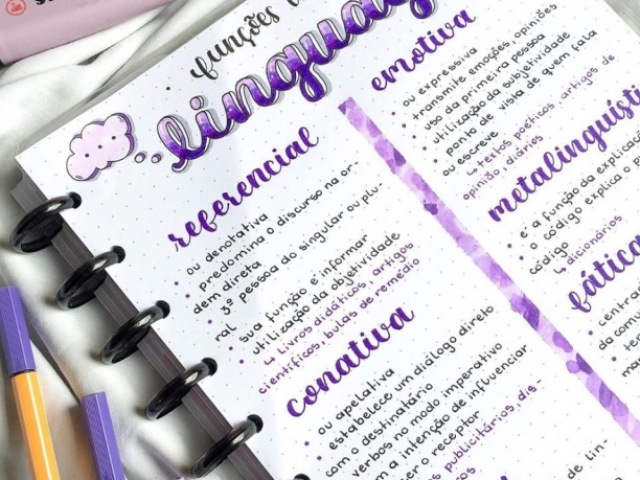 funções
linguag
referencial
• ou denotativa
• predomina o discurso na or-
dem direta
• 3ª pessoa do singular ou plu-
ral
• sua função é informar
• utilização da objetividade
↳ livros didáticos, artigos
científicos, bulas de remédio
conativa
• ou apelativa
• estabelece um diálogo direto
com o destinatário
• verbos no modo imperativo
a intenção de influenciar
receptor
publicitários, dis-
emotiva
• ou expressiva
• transmite emoções, opiniões
• uso da primeira pessoa
• utilização da subjetividade
• ponto de vista de quem fala
ou escreve
↳ textos poéticos, artigos de
opinião, diários
metalinguísti
• é a função da explica
• o código explica o
código
↳ dicionários
fática
• centr
da com
de lin-